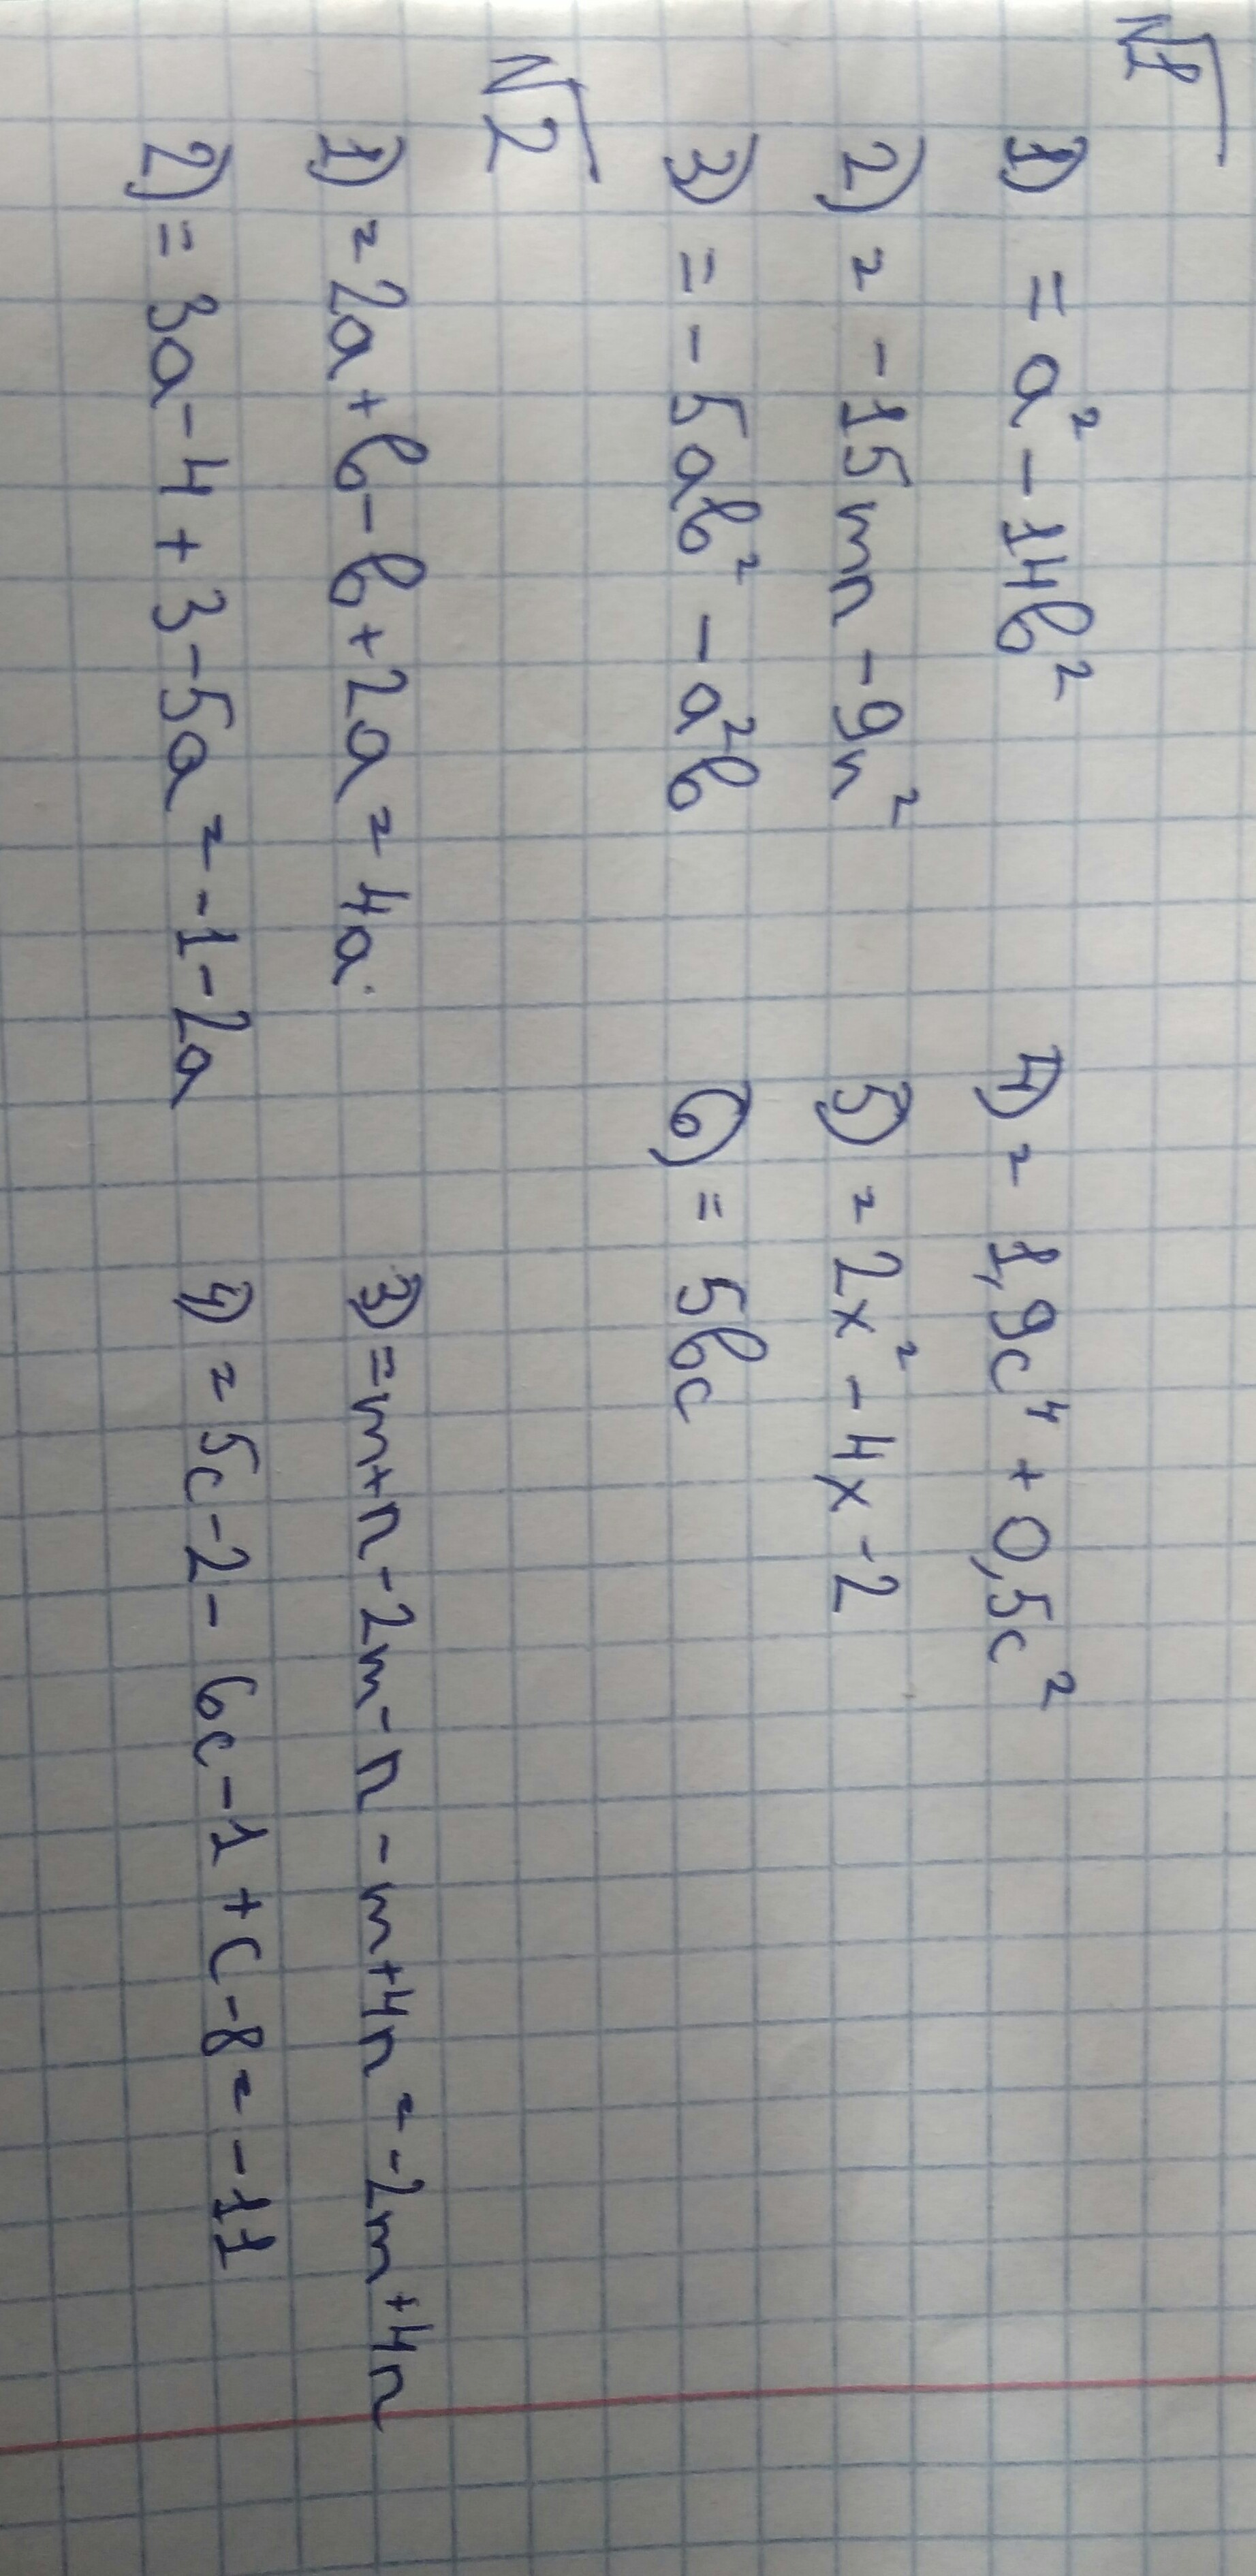 №1
1) = a² - 14b² 4) = 1,9c⁴ + 0,5c²
2) = -15mn - 9n² 5) = 2x² - 4x - 2
3) = -5ab² - a²b 6) = 5bc
№2
1) = 2a + b - b + 2a = 4a 3) = m+n - 2m - n - m+4n = -2m+4n
2) = 3a - 4 + 3 - 5a = -1 - 2a 4) = 5c - 2 - 6c - 1 + c - 8 = -11